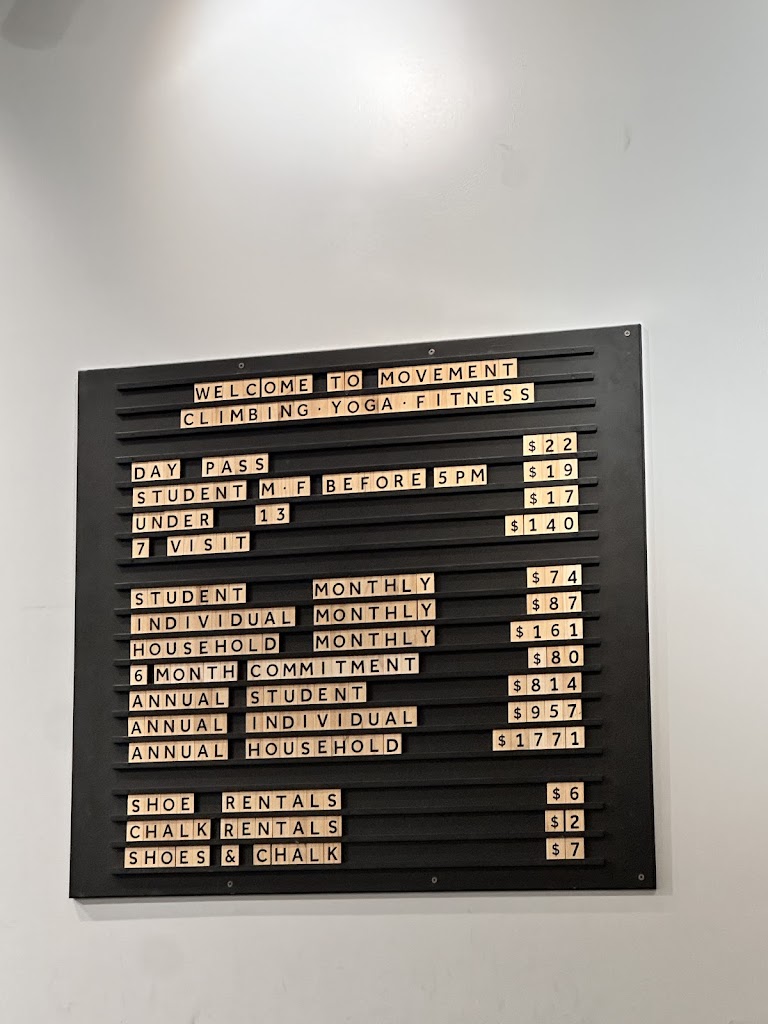 WELCOME TO MOVEMENT
CLIMBING·YOGA·FITNESS
DAY PASS $22
STUDENT M·F BEFORE 5PM $19
UNDER 13 $17
7 VISIT $140
STUDENT MONTHLY $74
INDIVIDUAL MONTHLY $87
HOUSEHOLD MONTHLY $161
6 MONTH COMMITMENT $80
ANNUAL STUDENT $814
ANNUAL INDIVIDUAL $957
ANNUAL HOUSEHOLD $1771
SHOE RENTALS $6
CHALK RENTALS $2
SHOES & CHALK $7